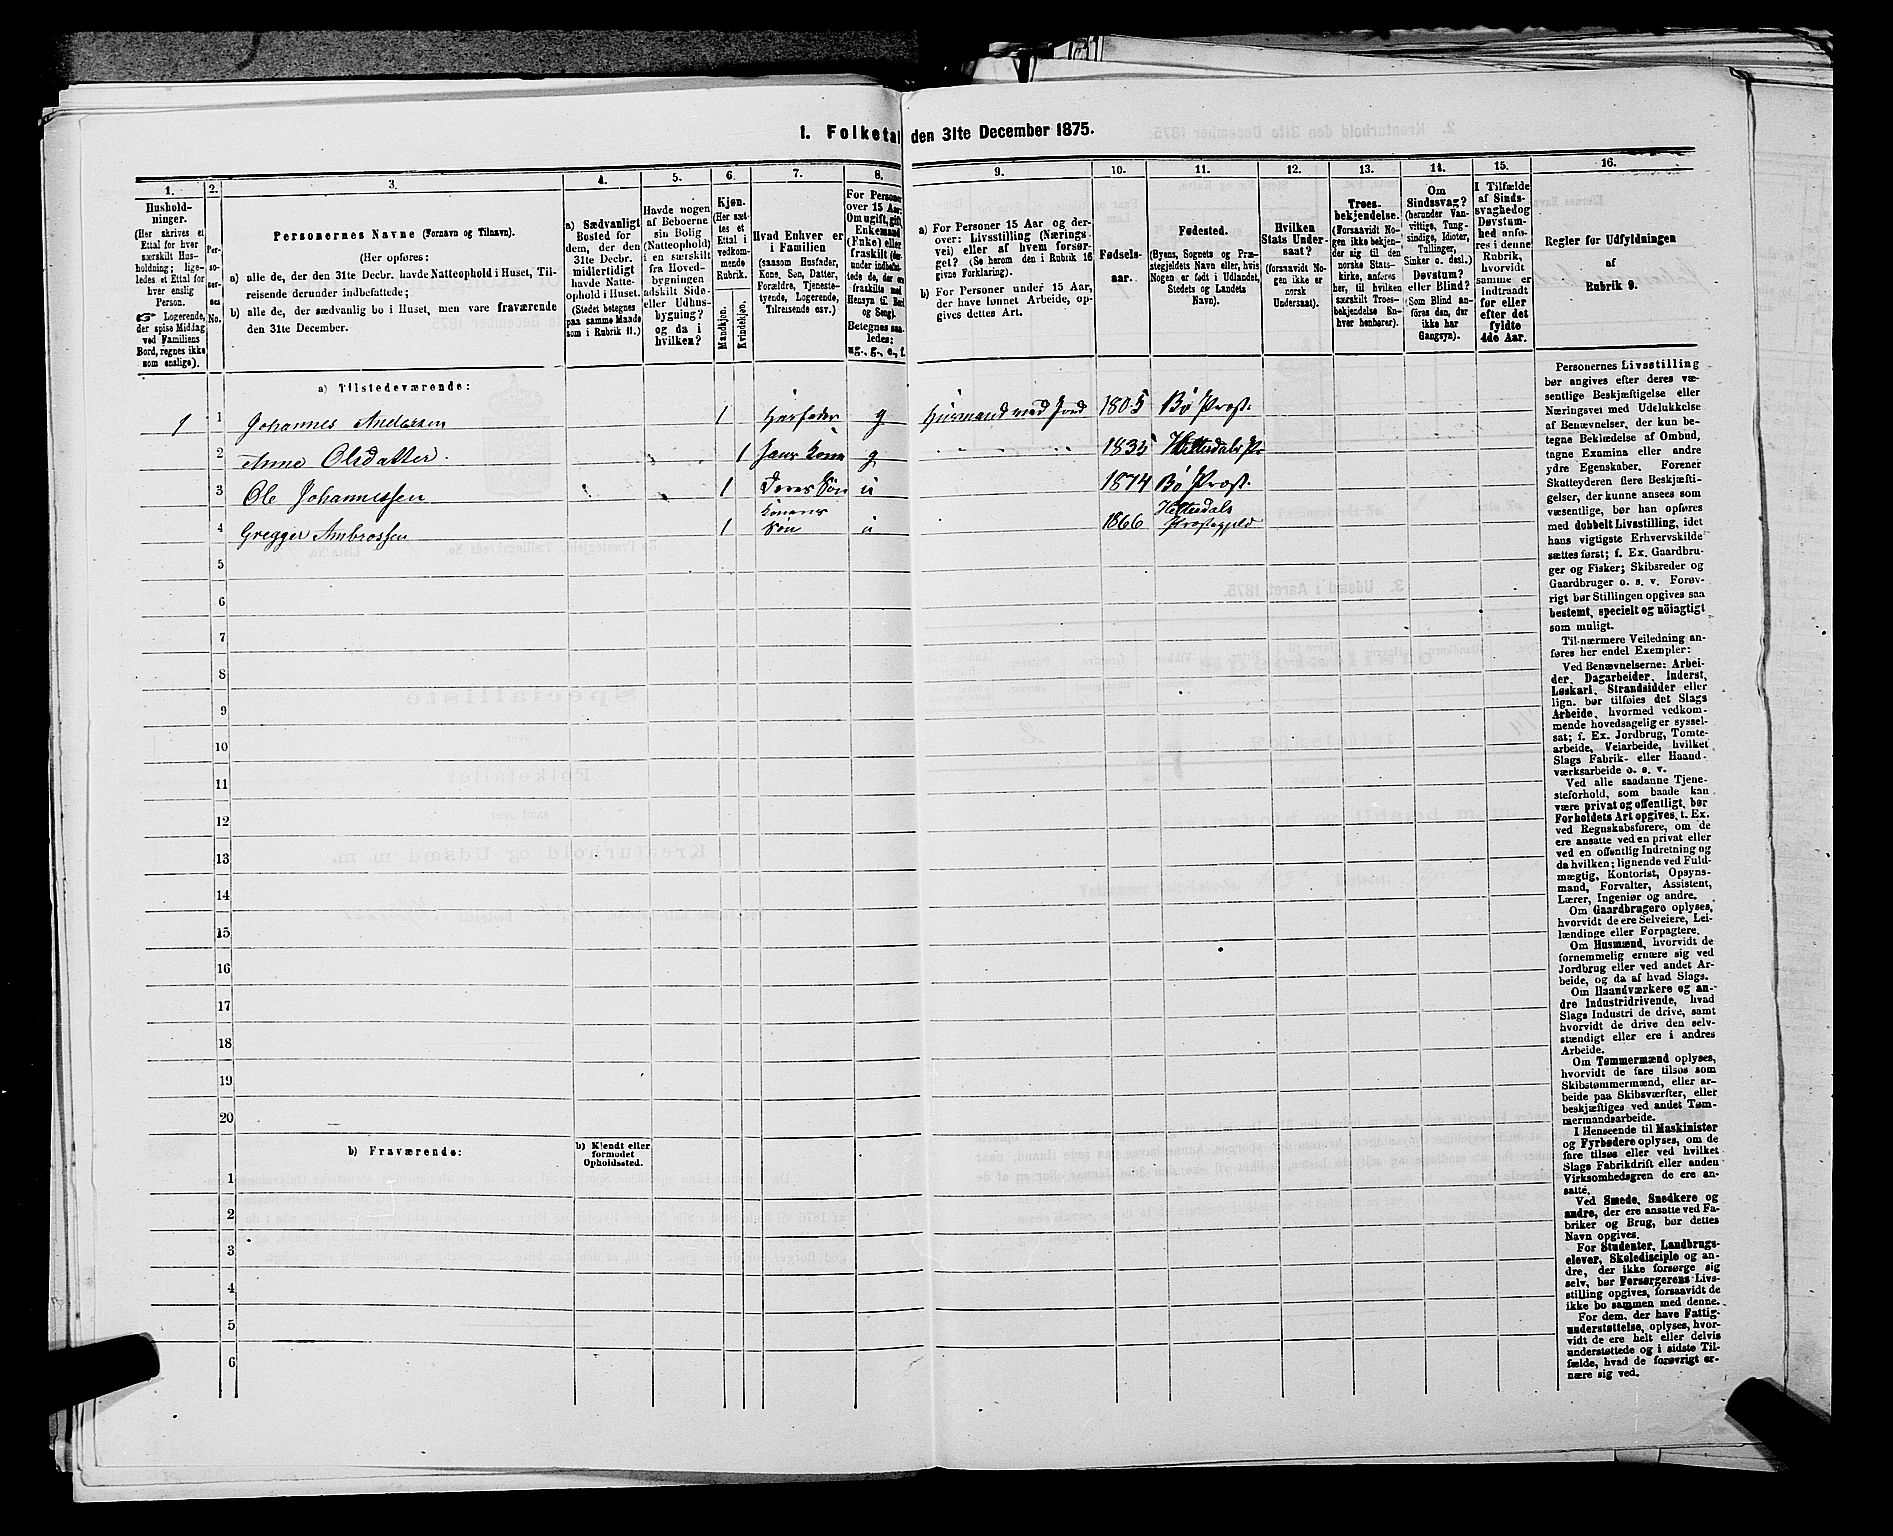 1. Folketal den 31te December 1875.
1.
2.
3.
4.
5.
6.
7.
8.
9.
10.
11.
12.
13.
14.
15.
16.
Hushold-
ninger.
(Her skrives et
Ettal for hver
særskilt Hus-
holdning; lige-
ledes et Ettal for
hver enslig
Person.
☞ Logerende,
der spise Middag
ved Familiens
Bord, regnes ikke
som enslige).
Per-
so-
ner-
nes
No.
Personernes Navne (Fornavn og Tilnavn).
(Her opføres:
a) alle de, der den 31te Decbr. havde Natteophold i Huset, Til-
reisende derunder indbefattede;
b) alle de, der sædvanlig bo i Huset, men vare fraværende
den 31te December.
a) Sædvanligt
Bosted for
dem, der den
31te Decbr.
midlertidigt
havde Natte-
ophold i Huset.
(Stedet betegnes
paa samme Maade
som i Rubrik 11.)
Havde nogen
af Beboerne
sin Bolig
(Natteophold)
i en særskilt
fra Hoved-
bygningen
adskilt Side-
eller Udhus-
bygning?
og da i
hvilken?
Kjøn.
(Her sæt-
tes et
Ettal i
vedkom-
mende
Rubrik.
Mandkjøn.
Kvindekjøn.
Hvad Enhver er
i Familien
(saasom Husfader,
Kone, Søn, Datter,
Forældre, Tjeneste-
tyende, Logerende,
Tilreisende osv.)
For Personer
over 15 Aar:
Om ugift, gift,
Enkemand
(Enke) eller
fraskilt
Betegnes saa-
ledes:
ug., g., e., f.
a) For Personer 15 Aar og der-
over: Livsstilling (Nærings-
vei) eller af hvem forsør-
get? (Se herom den i Rubrik 16
givne Forklaring).
b) For Personer under 15 Aar,
der have lønnet Arbeide, op-
gives dettes Art.
Fødsels-
aar.
Fødested.
(Byens, Sognets og Præ-
stegjeldets Navn eller, hvis
Nogen er født i Udlandet,
Stedets og Landets
Navn).
Hvilken
Stats Under-
saat?
(forsaavidt No-
gen ikke er
norsk
Undersaat).
Troes-
bekjendelse.
(Forsaavidt No-
gen ikke bekjen-
der sig til den
norske Stats-
kirke, anføres
her, til hvilken
særskilt Troes-
bekjendelse En-
hver henhører).
Om
Sindssvag?
(herunder Van-
vittige, Tung-
sindige, Idioter,
Tullinger,
Sinker o. desl.)
Døvstum?
eller Blind?
(Som Blind an-
føres den, der
ikke har
Gangsyn).
I Tilfælde
af Sinds-
svaghed og
Døvstum-
hed anfø-
res i denne
Rubrik,
hvorvidt
samme er
indtraadt
før eller
efter det
fyldte
4de Aar.
Regler for Udfyldningen
af
Rubrik 9.
a) Tilstedeværende:
1 1 Johannes Andersen 1 Husfader g Husmand med Jord 1805 Bø Prgst.
2 Anne Olsdatter. 1 Hans Kone g 1835 Hitterdals Pr
3 Ole Johannessen 1 Deres Søn u 1874 Bø Prgst.
4 Gregger Ambrossen 1 Konens Søn u 1866 Hitterdals
Præstegjeld
5
6
7
8
9
10
11
12
13
14
15
16
17
18
19
20
b) Fraværende:
b) Kjendt eller
formodet
Opholdssted.
1
2
3
4
5
6
Personernes Livsstilling
bør angives efter deres væ-
sentlige Beskjæftigelse eller
Næringsvei med Udelukkelse
af Benævnelser, der kun be-
tegne Beklædelse af Ombud,
tagne Examina eller andre
ydre Egenskaber. Forener
Skatteyderen flere Beskjæfti-
gelser, der kunne ansees som
væsentlige, bør han opføres
med dobbelt Livsstilling, idet
hans vigtigste Erhvervskilde
sættes først; f. Ex. Gaardbru-
ger og Fisker; Skibsreder og
Gaardbruger o. s. v. Forøv-
rigt bør Stillingen opgives saa
bestemt, specielt og nøiagtigt
som muligt.
Til nærmere Veiledning an-
føres her endel Exempler:
Ved Benævnelserne: Arbei-
der, Dagarbeider, Inderst,
Løskarl, Strandsidder eller
lign. bør tilføies det Slags
Arbeide, hvormed vedkom-
mende hovedsagelig er syssel-
sat; f. Ex. Jordbrug, Tomte-
arbeide, Veiarbeide, hvilket
Slags Fabrik- eller Haand-
værksarbeide o. s. v.
Ved alle saadanne Tjene-
steforhold, som baade kan
være privat og offentligt, bør
Forholdets Art opgives, t. Ex.
ved Regnskabsførere, om de
ere ansatte ved en privat eller
ved en offentlig Indretning og
da hvilken; lignende ved Fuld-
mægtig, Kontorist, Opsyns-
mand, Forvalter, Assistent,
Lærer, Ingeniør og andre.
Om Gaardbrugere oplyses,
hvorvidt de ere Selveiere, Lei-
lændinge eller Forpagtere.
Om Husmænd, hvorvidt de
fornemmelig ernære sig ved
Jordbrug eller ved andet Ar-
beide, og da af hvad Slags.
Om Haandværkere og an-
dre Industridrivende, hvad
Slags Industri de drive, samt
hvorvidt de drive den selv-
stændigt eller ere i andres
Arbeide.
Om Tømmermænd oplyses,
hvorvidt de fare tilsøs som
Skibstømmermænd, eller ar-
beide paa Skibsværfter, eller
beskjæftiges ved andet Tøm-
mermandsarbeide.
I Henseende til Maskinister
og Fyrbødere oplyses, om de
fare tilsøs eller ved hvilket
Slags Fabrikdrift eller anden
Virksomhedsgren de ere an-
satte.
Ved Smede, Snedkere og
andre, der ere ansatte ved Fa-
briker og Brug, bør dettes
Navn opgives.
For Studenter, Landbrugs-
elever, Skoledisciple og an-
dre, der ikke forsørge sig
selv, bør Forsørgerens Livs-
stilling opgives, forsaavidt de
ikke bo sammen med denne.
For dem, der have Fattig-
understøttelse, oplyses, hvor-
vidt de ere helt eller delvis
understøttede og i sidste Til-
fælde, hvad de forøvrigt er-
nære sig ved.